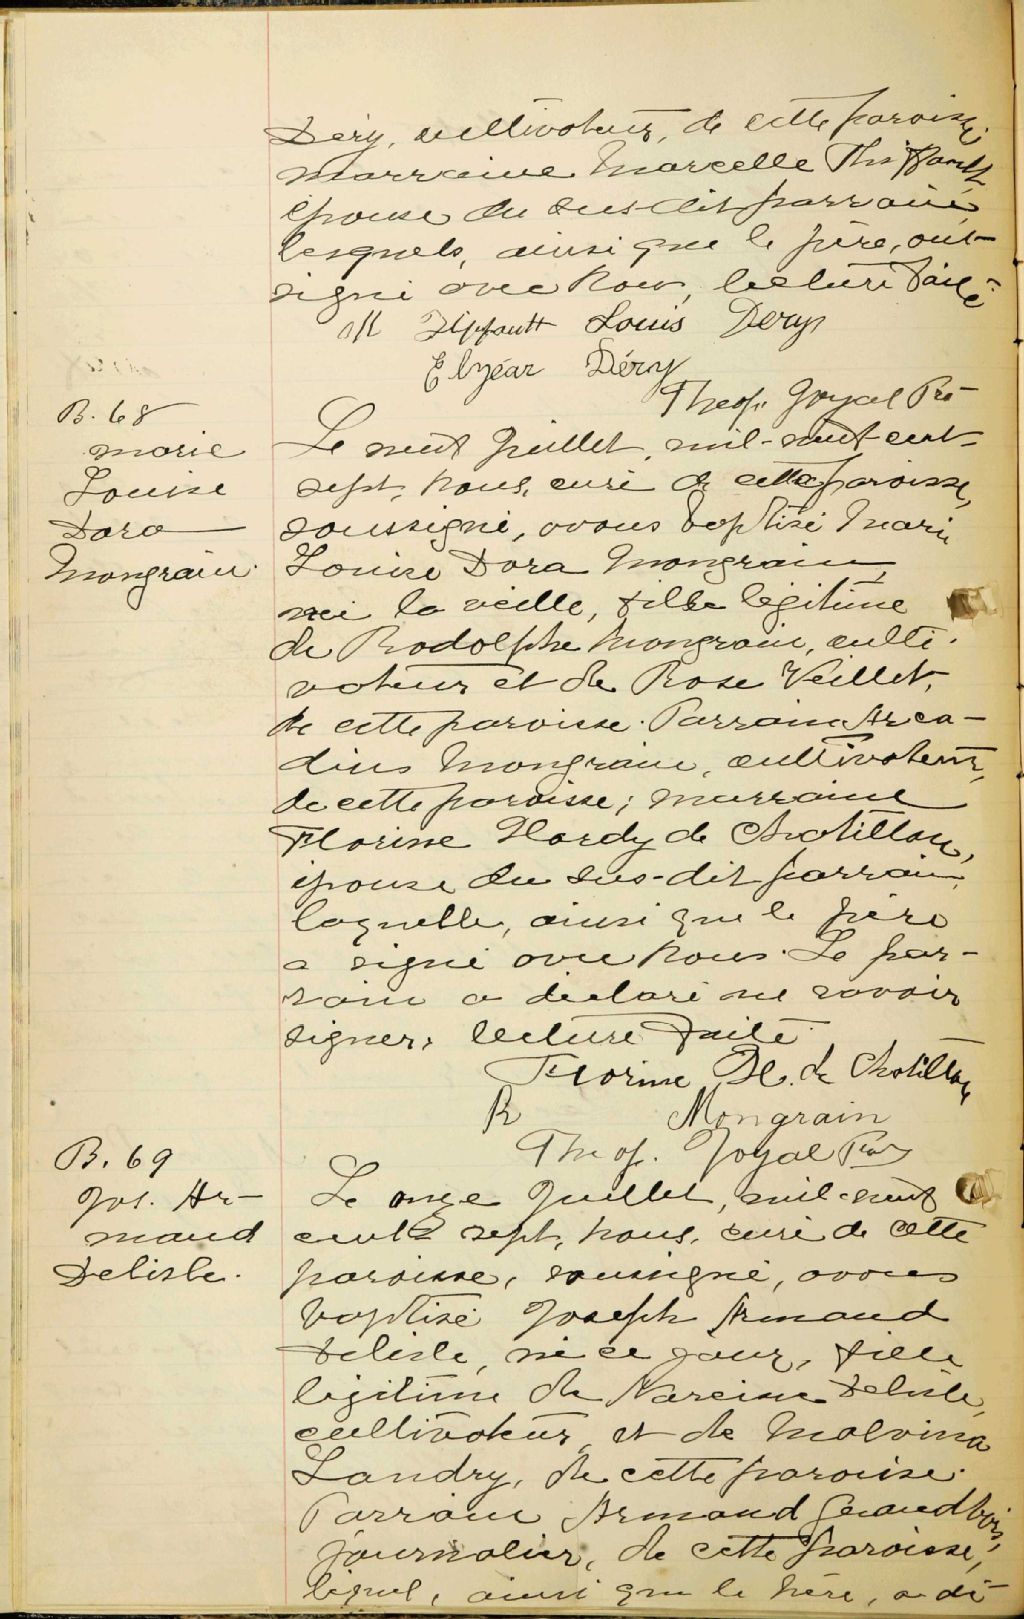 Déry, cultivateur, de cette paroisse,
marraine Marcelle Thiffault
épouse du sus-dit parrain,
lesquels, ainsi que le père, ont
signé avec nous, lecture faite.
M Tiffault Louis Dery
Elzéar Déry
Theop. Joyal Ptre
B. 68
Marie
Louise
Dora
Mongrain.
Le neuf Juillet, mil-neuf-cent-
sept, nous, curé de cette paroisse,
soussigné, avons baptisé Marie
Louise Dora Mongrain,
née la veille, fille légitime
de Rodolphe Mongrain, culti-
vateur et de Rose Veillet,
de cette paroisse. Parrain Arca-
dius Mongrain, cultivateur,
de cette paroisse; marraine
Florine Hardy de Chatillon,
épouse du sus-dit parrain,
laquelle, ainsi que le père
a signé avec nous. Le par-
rain a déclaré ne savoir
signer, lecture faite.
Florine H. de Chatillon
R Mongrain
Theop. Joyal Ptre
B. 69
Jos. Ar-
mand
Delisle.
Le onze Juillet, mil-neuf
cent sept, nous, curé de cette
paroisse, soussigné, avons
baptisé Joseph Armand
Delisle, né ce jour, fille
légitime de Narcisse Delisle,
cultivateur, et de Malvina
Landry, de cette paroisse.
Parrain Armand Grandbois,
journalier, de cette paroisse,
lequel, ainsi que le père, a dé-